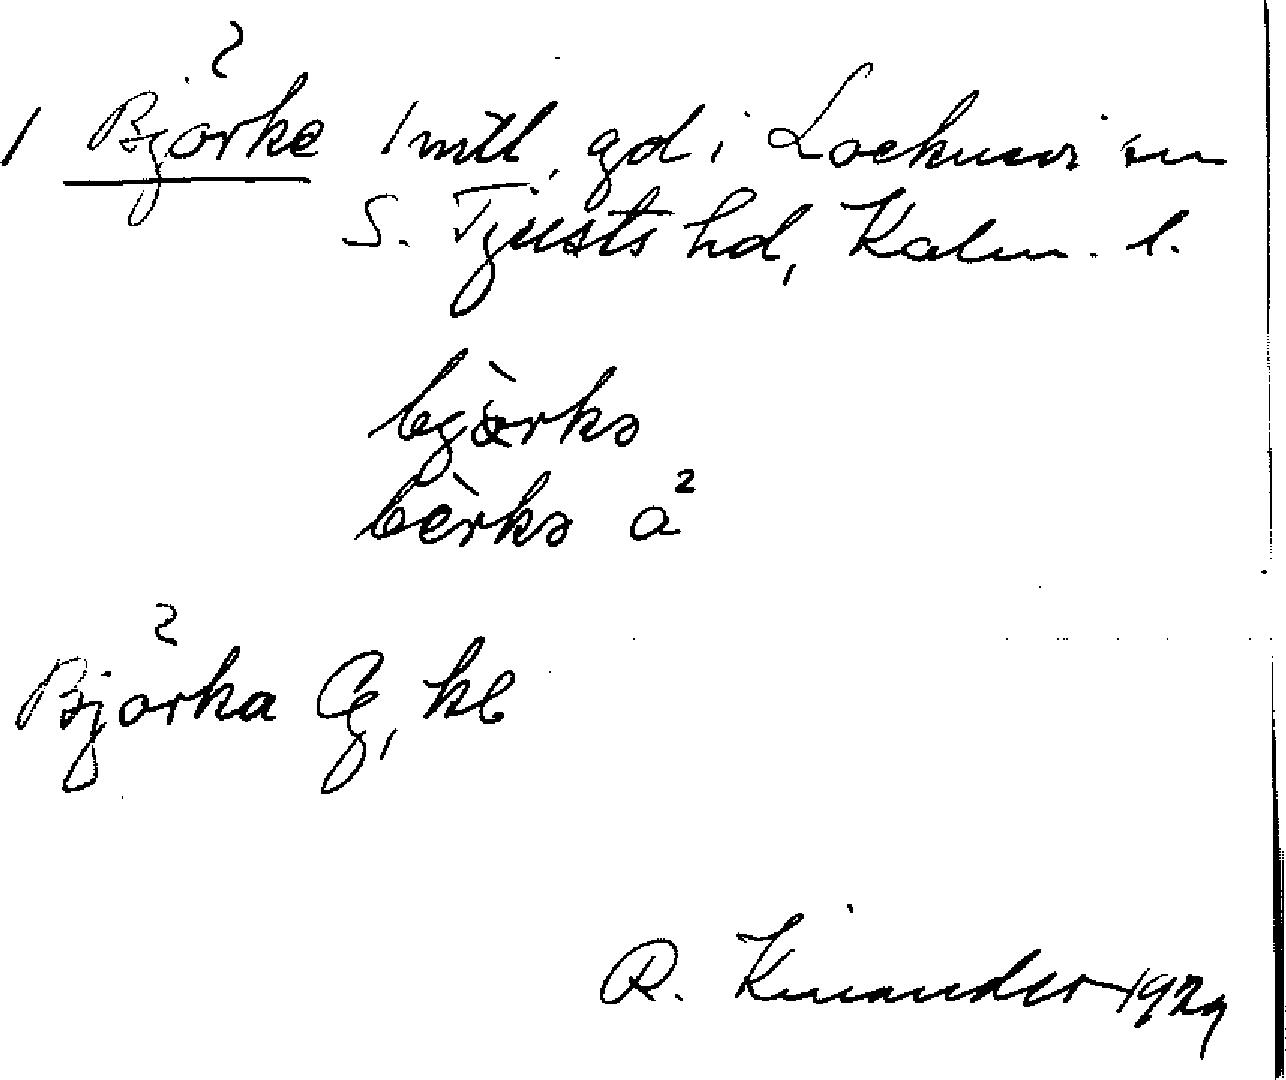 1 Björke 1 mtl, gd i Locknevi sn
S. Tjusts hd, Kalm. l.
bjærkə
bèrkə a²
Björka Gg, kb
R. Kinander 1929